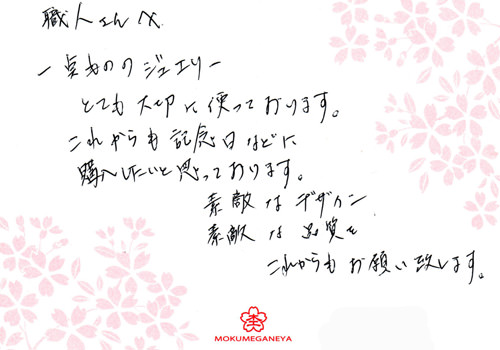 職人さんへ
一点もののジュエリー
とても大切に使っております。
これからも記念日などに
購入したいと思っております。
素敵なデザイン
素敵な品質を
これからもお願い致します。
MOKUMEGANEYA